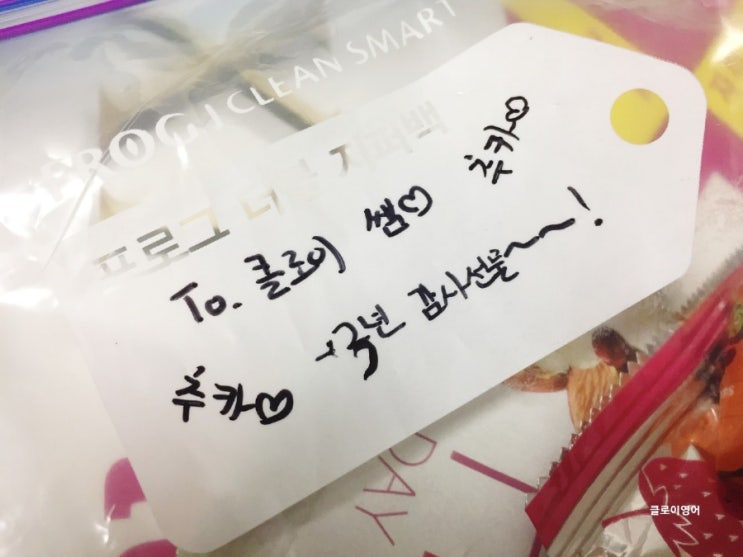 FROG CLEAN SMART
프로그 더블 지퍼백
To. 클로이 쌤♡ 축카♡
축카♡ 국년 감사선물~~!
DAY
클로이영어